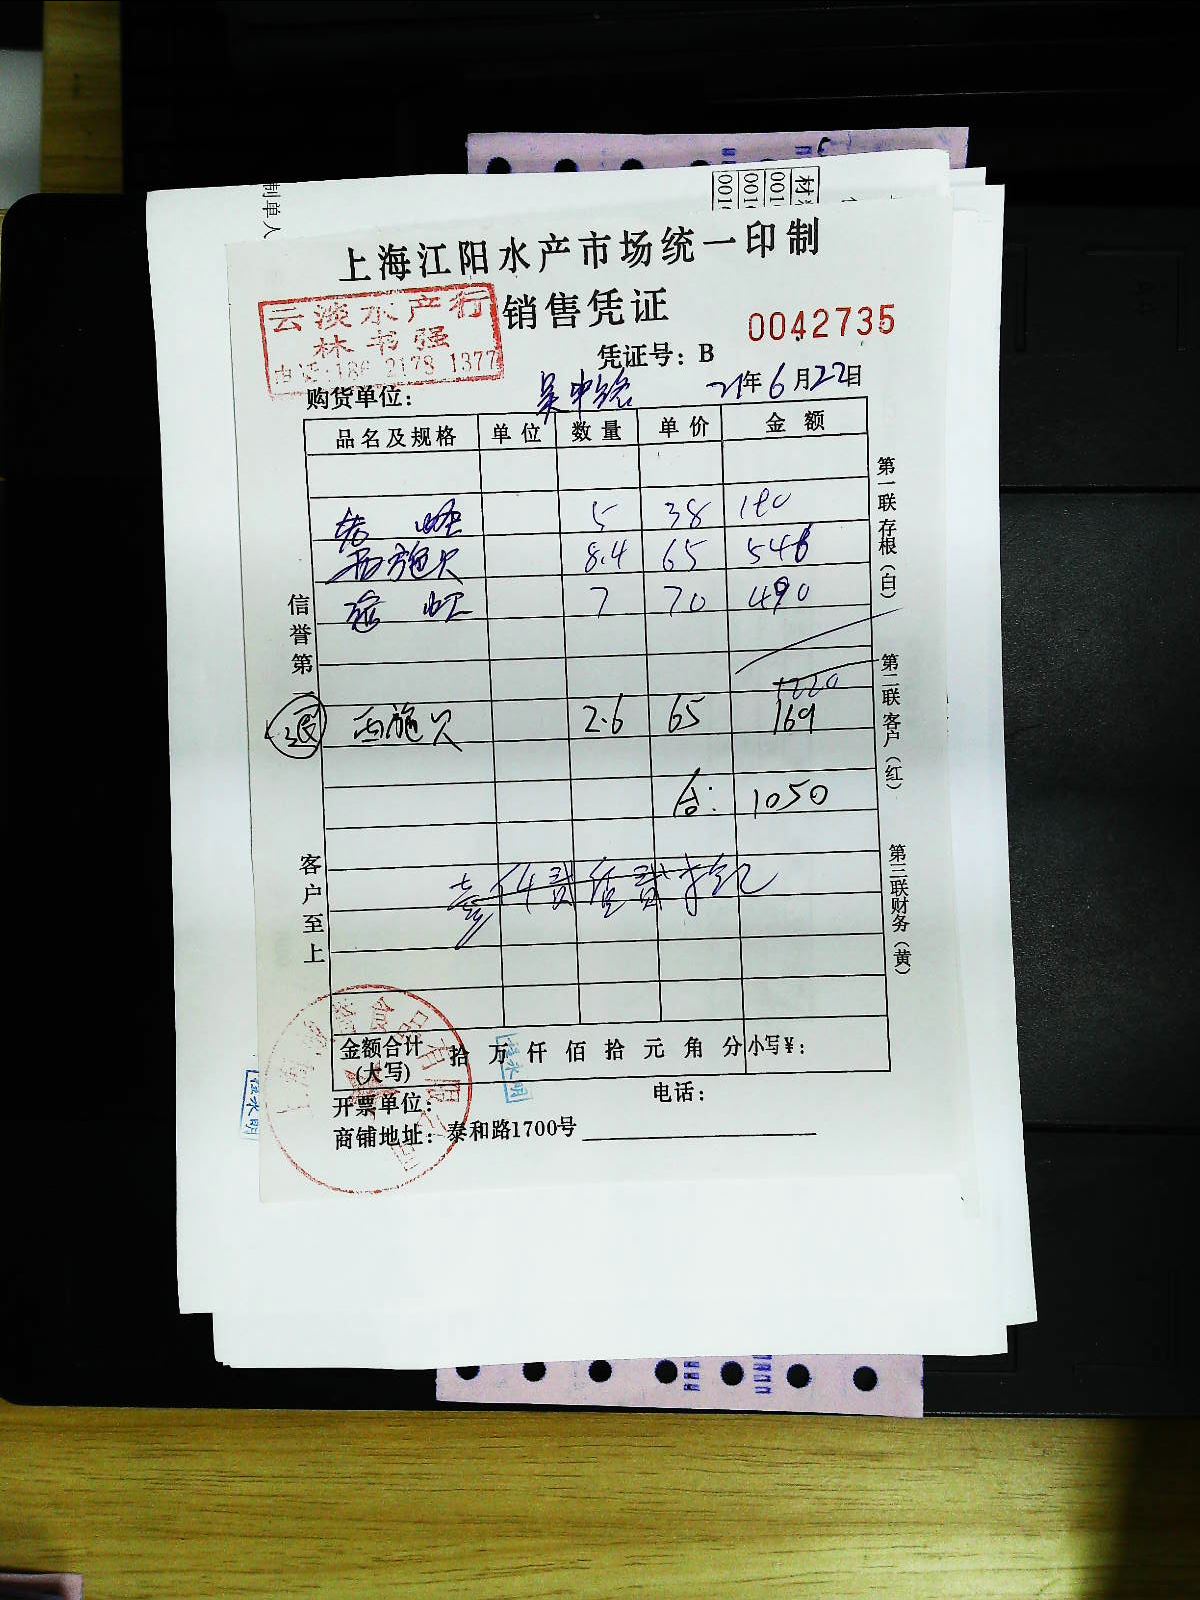 制单人
材
001
001
001
上海江阳水产市场统一印制
销售凭证
0042735
云淡水产行
林书强
凭证号：B
购货单位：吴中路 21年6月22日
品名及规格 单位 数量 单价 金额
5 38 190
西施贝 8.4 65 546
7 70 490
1226
退 西施贝 2.6 65 169
合：1050
金额合计(大写) 拾万仟佰拾元角分 小写¥：
开票单位： 电话：
商铺地址：泰和路1700号
信誉第一
客户至上
第一联存根（白）
第二联客户（红）
第三联财务（黄）